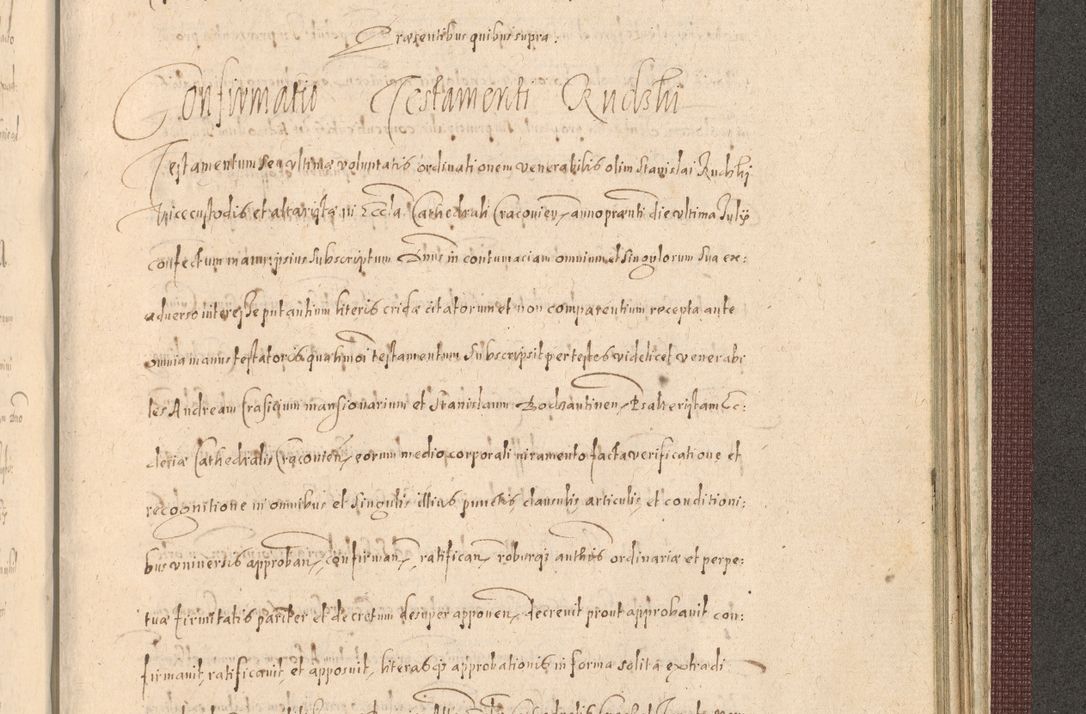 Præsentibus quibus supra.
Confirmatio Testamenti Ruchhi
Testamentum seu ultimæ voluptatis ordinationem venerabilis olim Stanislai Ruchhi
Vicecustodis et altaristæ in Eccla Cathedrali Cracovien, anno prænti die ultima Julij
confectum manu ipsius subscriptum Dnus in contumaciam omnium et singulorum sua ex:
adverso interesse putantium literis cridæ citatorum et non comparentium recepta ante
omnia manus testatoris qua hmoi testamentum subscripsit per testes videlicet venerabi
les Andream Crasicium mansionarium et Stanislaum Bodzantinen, Psalteristam Ec:
clesiæ Cathedralis Cracovien, eorum medio corporali iuramento facta verificatione et
recognitione in omnibus et singulis illius punctis clausulis articulis et conditioni:
bus universis approban, confirman, ratifican, roburq, authtis ordinariæ et perpe:
tuæ firmitatis pariter et decretum desuper apponen, decrevit prout approbavit con:
firmavit, ratificavit, et apposuit, literasq, approbationis in forma solita extradi